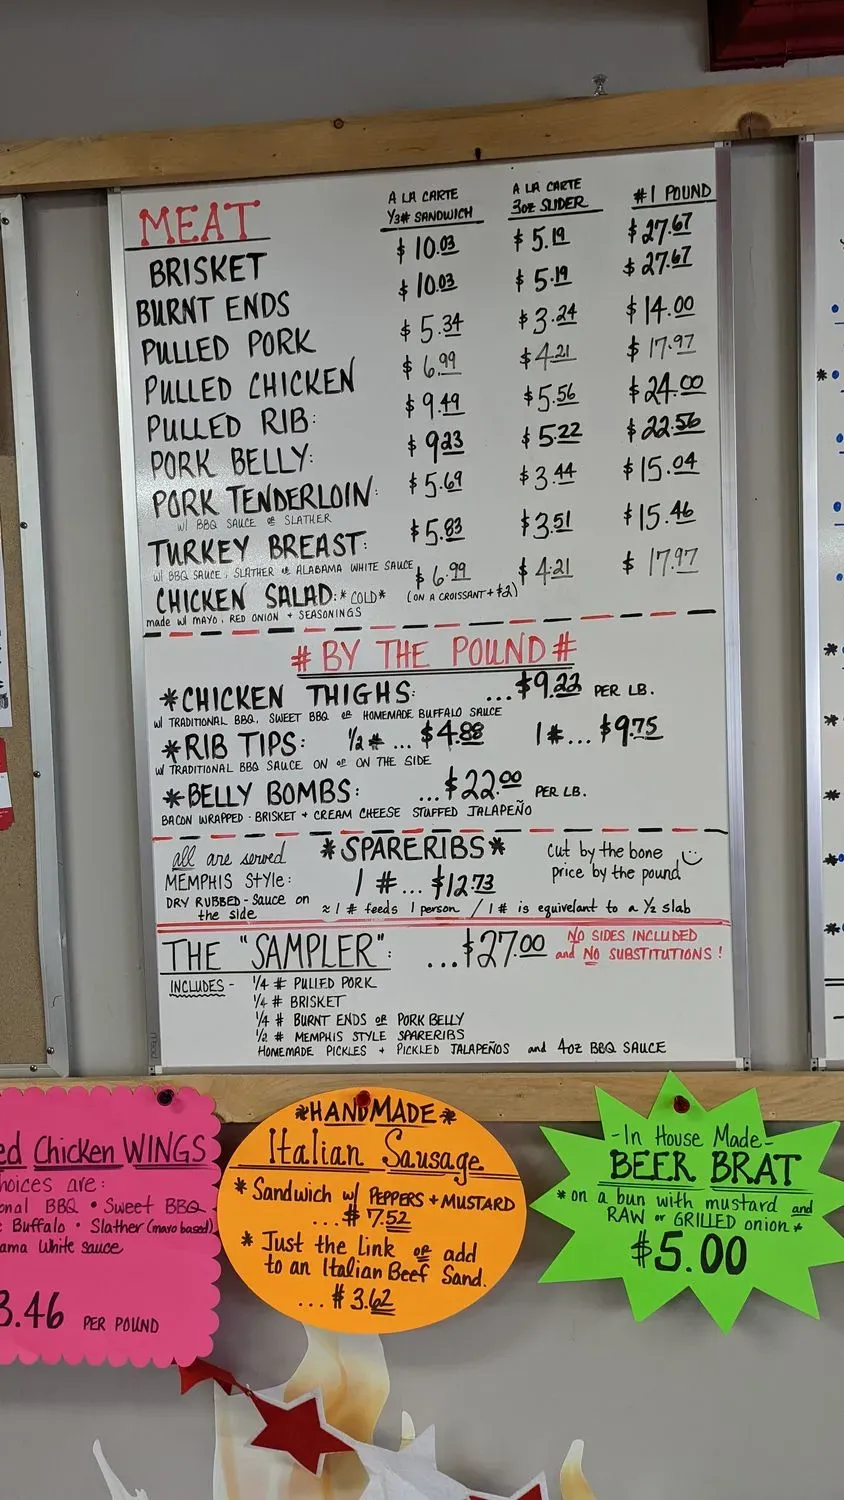 MEAT
A LA CARTE
1/3# SANDWICH
A LA CARTE
3oz SLIDER
#1 POUND
BRISKET $10.03 $5.19 $27.67
BURNT ENDS $10.03 $5.19 $27.67
PULLED PORK $5.34 $3.24 $14.00
PULLED CHICKEN $6.99 $4.21 $17.97
PULLED RIB: $9.49 $5.56 $24.00
PORK BELLY: $9.23 $5.22 $22.56
PORK TENDERLOIN: $5.69 $3.44 $15.04
w/ BBQ SAUCE OR SLATHER
TURKEY BREAST: $5.83 $3.51 $15.46
w/ BBQ SAUCE, SLATHER OR ALABAMA WHITE SAUCE
CHICKEN SALAD: *COLD* $6.99 $4.21 $17.97
(ON A CROISSANT + $2)
made w/ MAYO, RED ONION + SEASONINGS
# BY THE POUND #
*CHICKEN THIGHS: ...$9.22 PER LB.
w/ TRADITIONAL BBQ, SWEET BBQ OR HOMEMADE BUFFALO SAUCE
*RIB TIPS: 1/2 # ... $4.88 1# ... $9.75
w/ TRADITIONAL BBQ SAUCE ON OR ON THE SIDE
*BELLY BOMBS: ...$22.00 PER LB.
BACON WRAPPED - BRISKET + CREAM CHEESE STUFFED JALAPEÑO
all are served
MEMPHIS STYLE:
DRY RUBBED - Sauce on
the side
*SPARERIBS*
1 # ... $12.73
cut by the bone
price by the pound
≈ 1 # feeds 1 person / 1 # is equivelant to a 1/2 slab
THE "SAMPLER": ...$27.00
NO SIDES INCLUDED
and NO SUBSTITUTIONS!
INCLUDES - 1/4 # PULLED PORK
1/4 # BRISKET
1/4 # BURNT ENDS OR PORK BELLY
1/2 # MEMPHIS STYLE SPARERIBS
HOMEMADE PICKLES + PICKLED JALAPEÑOS and 4oz BBQ SAUCE
Chicken WINGS
are:
BBQ • Sweet BBQ
Buffalo • Slather (mayo based)
White sauce
3.46 PER POUND
*HANDMADE*
Italian Sausage
* Sandwich w/ PEPPERS + MUSTARD
... $ 7.52
* Just the Link or add
to an Italian Beef Sand.
... $ 3.62
-In House Made-
BEER BRAT
*on a bun with mustard and
RAW or GRILLED onion*
$5.00